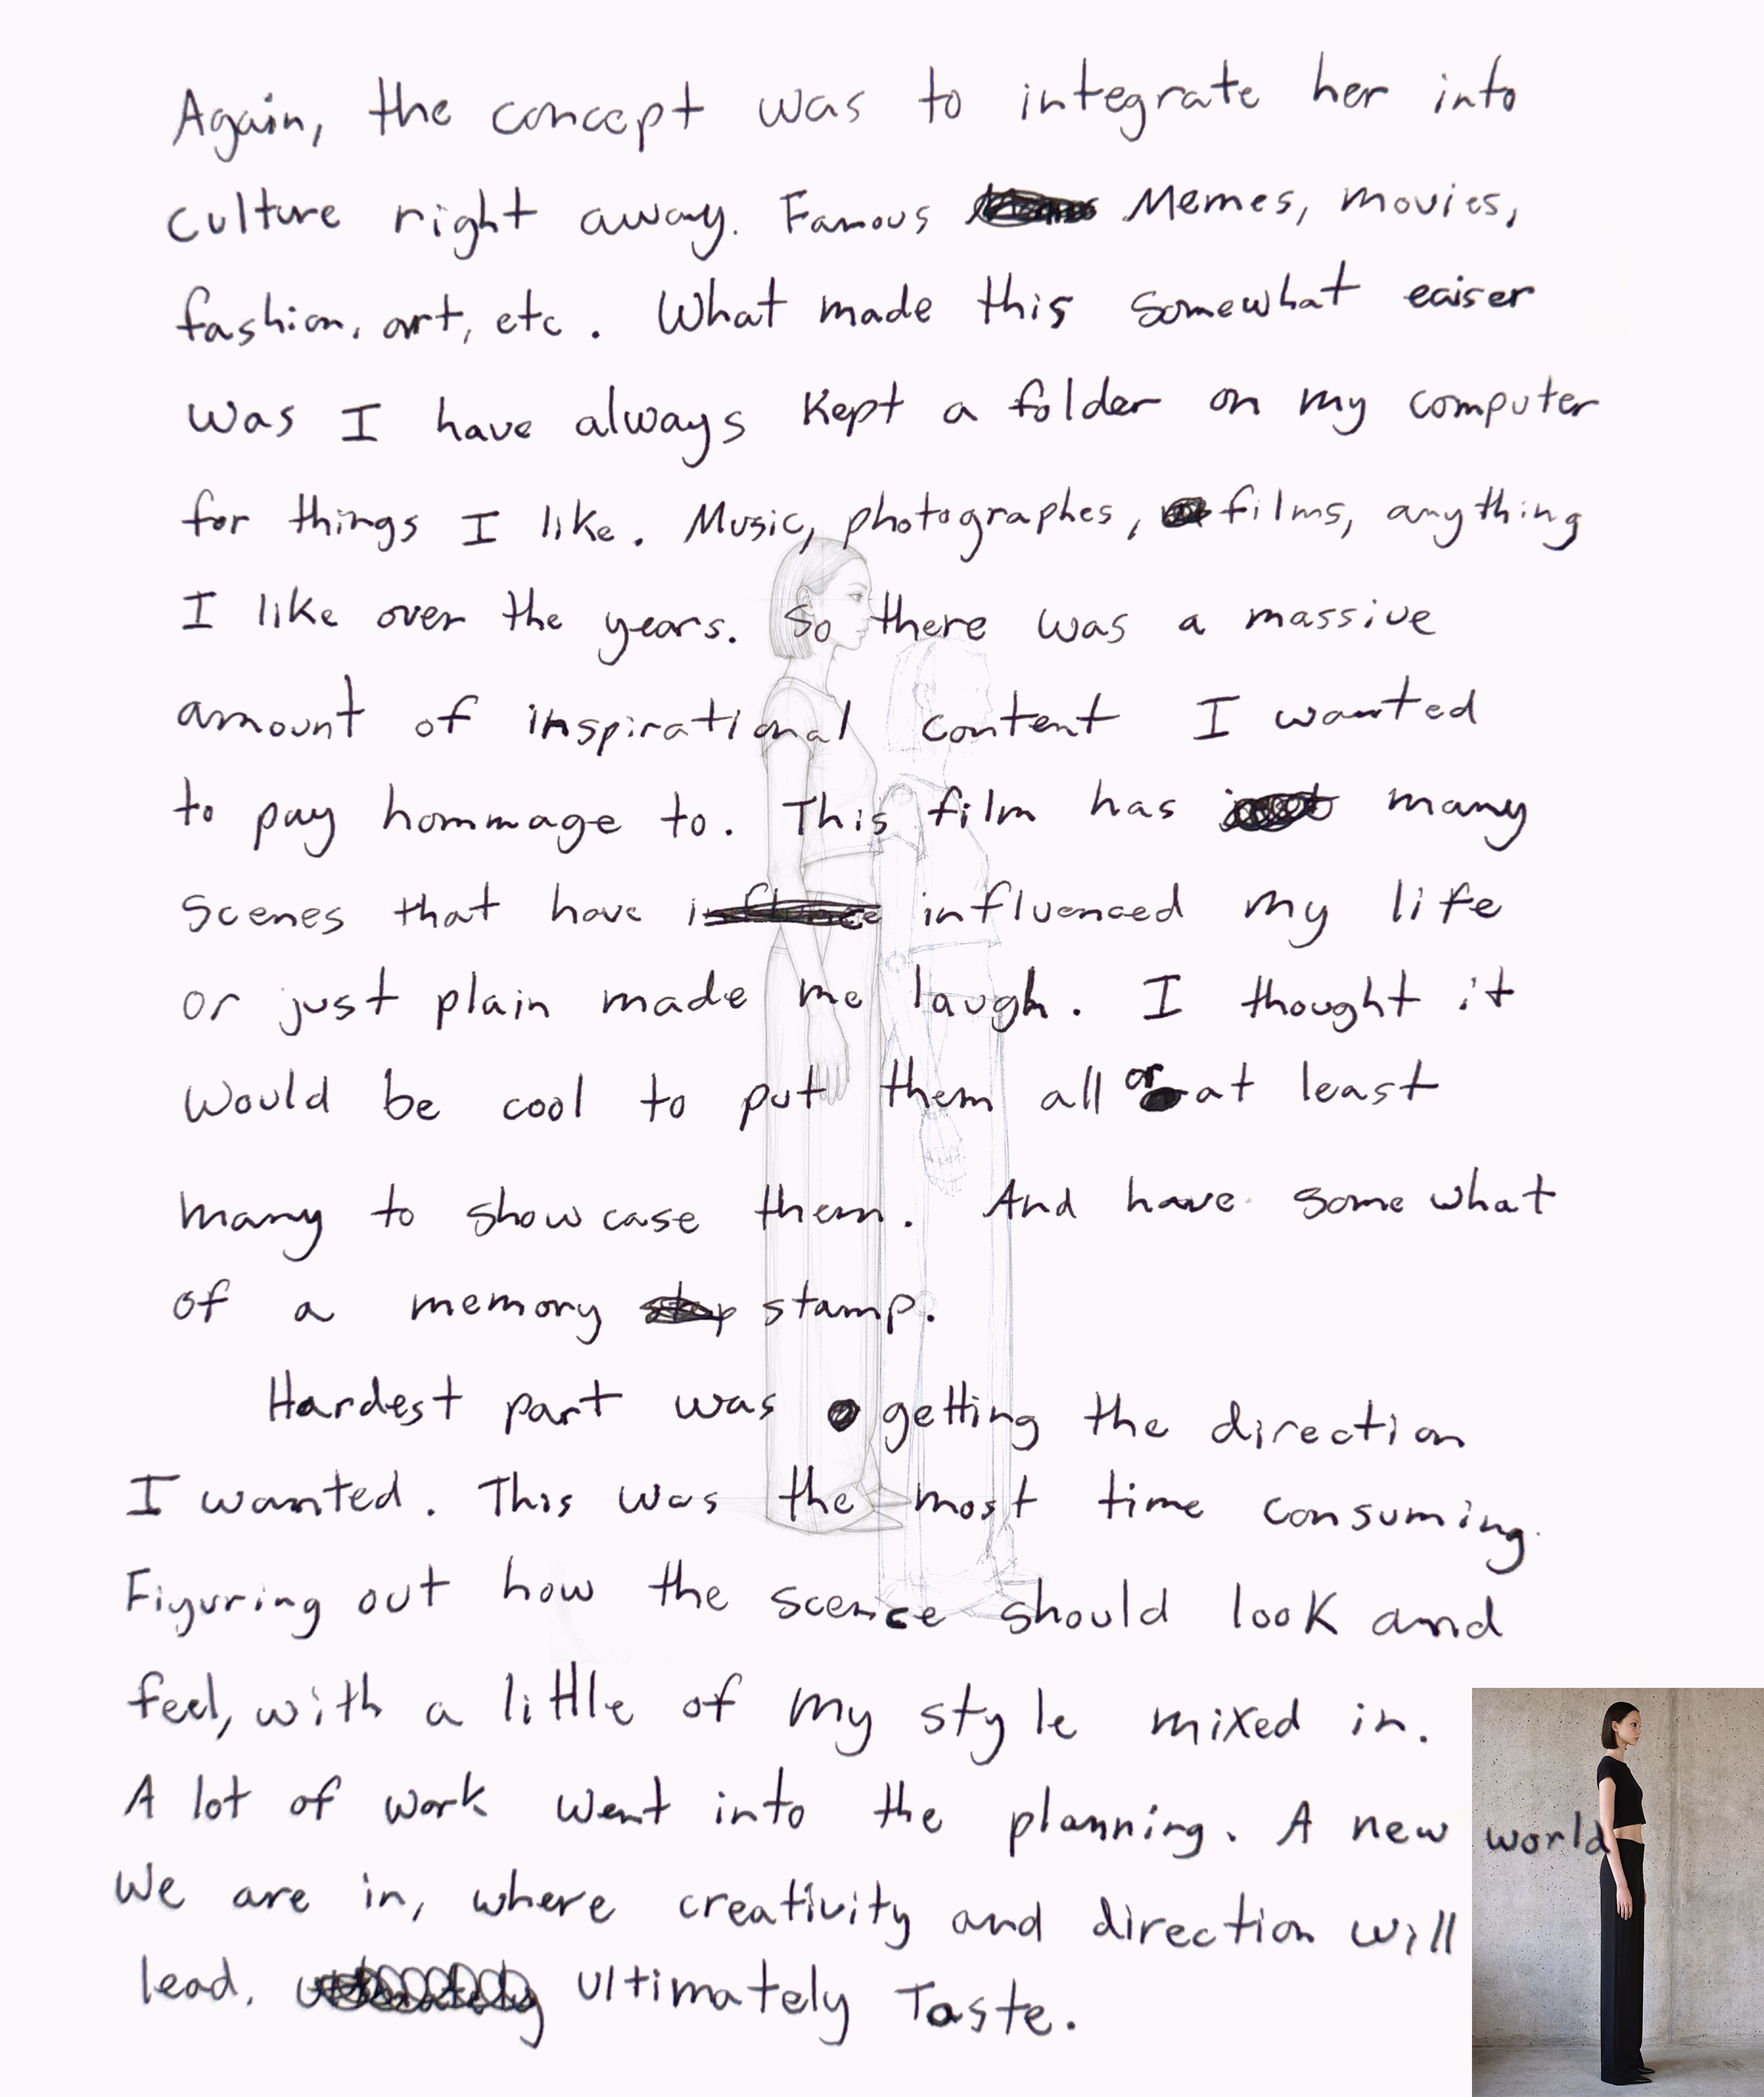 Again, the concept was to integrate her into
culture right away. Famous Memes, movies,
fashion, art, etc. What made this somewhat eaiser
was I have always kept a folder on my computer
for things I like. Music, photographes, films, anything
I like over the years. So there was a massive
amount of inspirational content I wanted
to pay hommage to. This film has many
scenes that have influenced my life
or just plain made me laugh. I thought it
would be cool to put them all or at least
many to showcase them. And have somewhat
of a memory stamp.
Hardest part was getting the direction
I wanted. This was the most time consuming.
Figuring out how the scence should look and
feel, with a little of my style mixed in.
A lot of work went into the planning. A new world
We are in, where creativity and direction will
lead. Ultimately Taste.